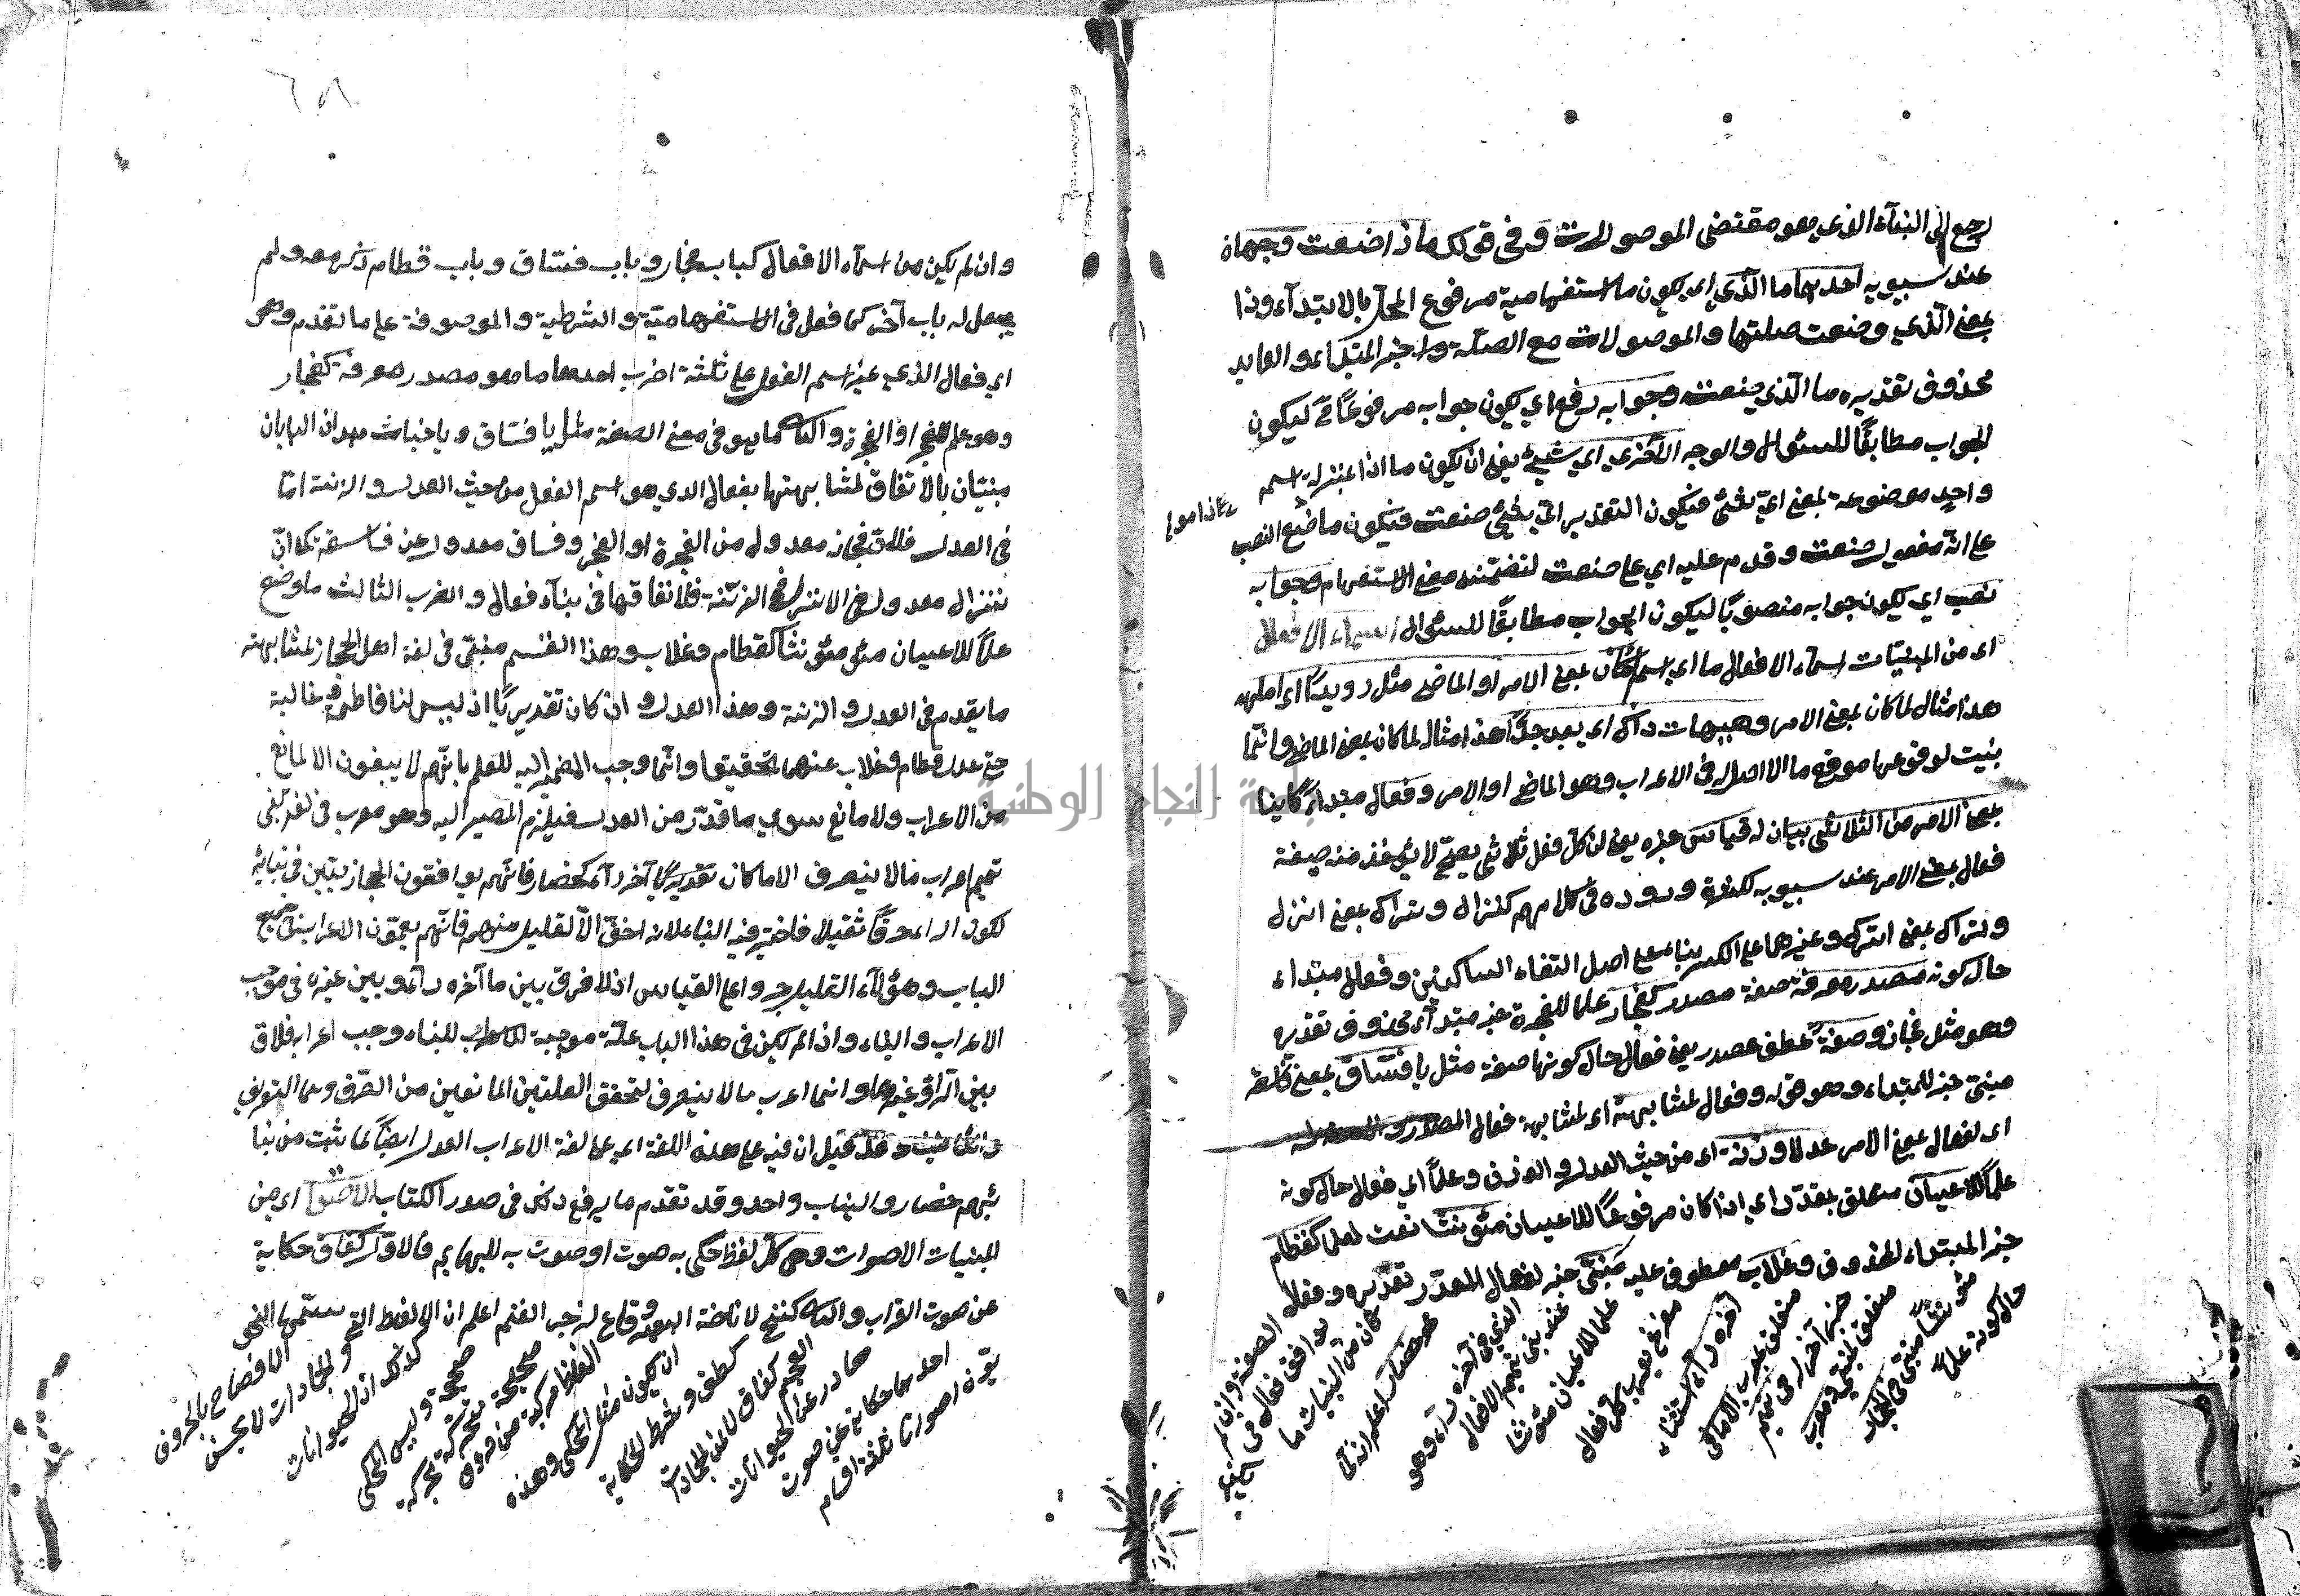 رجع الى البناء الذي هو مقتضى الموصولات وفي قولك ماذا صنعت وجهان
عند سيبويه احدهما ما الذي اي يكون ما استفهامية مرفوع المحل بالابتداء وذا
بمعنى الذي وصنعت صلتها والموصولات مع الصلة خبر المبتداء والعايد
محذوف تقديره ما الذي صنعت وجوابه رفع اي يكون جوابه مرفوعا ليكون
الجواب مطابقا للسئوال والوجه الآخر اي شيئ يعني ان يكون ماذا بمنزلة اسم
واحد موضوعة بمعنى اي شيئ فيكون التقدير اي شيئ صنعت فيكون ماذا موضع النصب
على انه مفعول صنعت وقدم عليه اي على صنعت لتضمنه معنى الاستفهام وجوابه
نصب اي يكون جوابه منصوبا ليكون الجواب مطابقا للسئوال اسماء الافعال
اى من المبنيات اسماء الافعال ما اي اسم كان بمعنى الامر او الماضي مثل رويدا اى امهله
هذا مثال لما كان بمعنى الامر وهيهات ذاك اى بعد جدا هذا مثال لما كان بمعنى الماضي وانما
بنيت لوقوعها موقع ما لا اصل له في الاعراب وهو الماضي او الامر وفعال مبتداء كاينا
بمعنى الامر من الثلاثي بيان له قياس خبره يعني ان كل فعل ثلاثي يصح لا يؤخذ منه صيغة
فعال بمعنى الامر عند سيبويه لكثرة وروده في كلامهم كنزال وتراك بمعنى انزل
وتراك بمعنى اترك وغيرهما على الكسر بناء على اصل التقاء الساكنين وفعال مبتداء
حال كونه مصدر معرفة صفة مصدر كفجار علما للفجرة خبر مبتداء محذوف تقديره
وهو مثل فجار وصفة عطف مصدر يعني فعال حال كونها صفة مثل يا فساق بمعنى فاسقة
مبني خبر للمبتداء وهو قوله وفعال لمشابهته اى لمشابهة فعال المصدر
اى لفعال بمعنى الامر عدلا وزنة اى من حيث العدل والوزن وعلما اي فعال حال كونه
علما للاعيان متعلق بمقدر اي اذا كان مرفوعا للاعيان مؤنثا نعت لعلما كقطام
خبر المبتداء المحذوف وغلاب معطوف عليه مبني خبر لفعال المقدر تقديره وفعال
حال كونه علما
مؤنثا مبني في الحجاز
متعلق لمبني ومعرب
خبر آخر في تميم
متعلق بمعرب الا ما في
آخره راء استثناء
مفرغ يعرب كل فعال
علما للاعيان مؤنثا
عند بني تميم الا فعال
الذي في آخره راء وهو
نحو حضار اعلم ان ما
كان من المبنيات ما
يوافق فعال في
الصفة وان لم
وان لم يكن من اسماء الافعال كباب فجار وباب فساق وباب قطام ذكر معه ولم
يجعل له باب آخر كما فعل في الاستفهامية والشرطية والموصوفة على ما تقدم وهو
اي فعال الذي غير اسم الفعل على ثلثة اضرب احدها ما هو مصدر معرفة كفجار
وهو علم للفجر او الفجرة والثاني ما هو في معنى الصفة مثل يا فساق ويا خباث هذان البابان
مبنيان بالاتفاق لمشابهتها بفعال الذي هو اسم الفعل من حيث العدل والزنة اما
في العدل فلان فجار معدوله من الفجرة او الفجر وفساق معدول عن فاسقة كما ان
نزال معدول عن الانزل وفي الزنة فلاتفاقها في بناء فعال والضرب الثالث ما وضع
علما للاعيان مؤنثا كقطام وغلاب وهذا القسم مبني في لغة اهل الحجاز لمشابهته
ما يقدم في العدل والزنة وهذا العدل وان كان تقديريا اذ ليس لنا قاطمة وغالبة
حتى عدل قطام وغلاب عنهما تحقيقا وانما وجب المصير اليه للعلم بانهم لا يبنون الا لمانع
من الاعراب ولا مانع سوى ما قدر من العدل فيلزم المصير اليه وهو معرب في لغة بني
تميم اعراب ما لا ينصرف الا ما كان آخر راء كحضار فانهم يوافقون الحجازيين في بنائه
لكون الراء حرفا ثقيلا فاختير فيه البناء لانه اخف الا القليل منهم فانهم يعمون الاعراب في جميع
الباب وهؤلاء القليل جروا على القياس اذ لا فرق بين ما آخره راء وبين غيره في موجب
الاعراب والبناء واذا لم يكن في هذا الباب علة موجبة للبناء وجب اعرابه فلا فرق
بين الراء وغيرها وانما اعرب ما لا ينصرف لتحقق العلتين المانعين من الصرف وهما التعريف
والتانيث وقد قيل ان فيه على هذه اللغة اي على لغة الاعراب العدل ايضا لما ثبت من بنا
ئهم حضار والباب واحد وقد تقدم ما يرفع ذلك في صدر الكتاب الاصوات اى من
المبنيات الاصوات وهي كل لفظ حكى به صوت او صوت به للبهايم فالاول كغاق حكاية
عن صوت الغراب والثاني كنخ لاناخة البعير وقاع لزجر الغنم اعلم ان الالفاظ التي تسميها النحو
يون اصواتا ثلثة اقسام
احدها حكاية عن صوت
صادر عن الحيوانات
العجم كغاق او عن الجمادات
كطق وشرط الحكاية
ان يكون مثل المحكي وهذه
الفاظ مركبة من حروف
صحيحة محركة بحركة
صحيحة وليس المحكي
كذلك اذ الحيوانات
والجمادات لا يحسن
الافصاح بالحروف